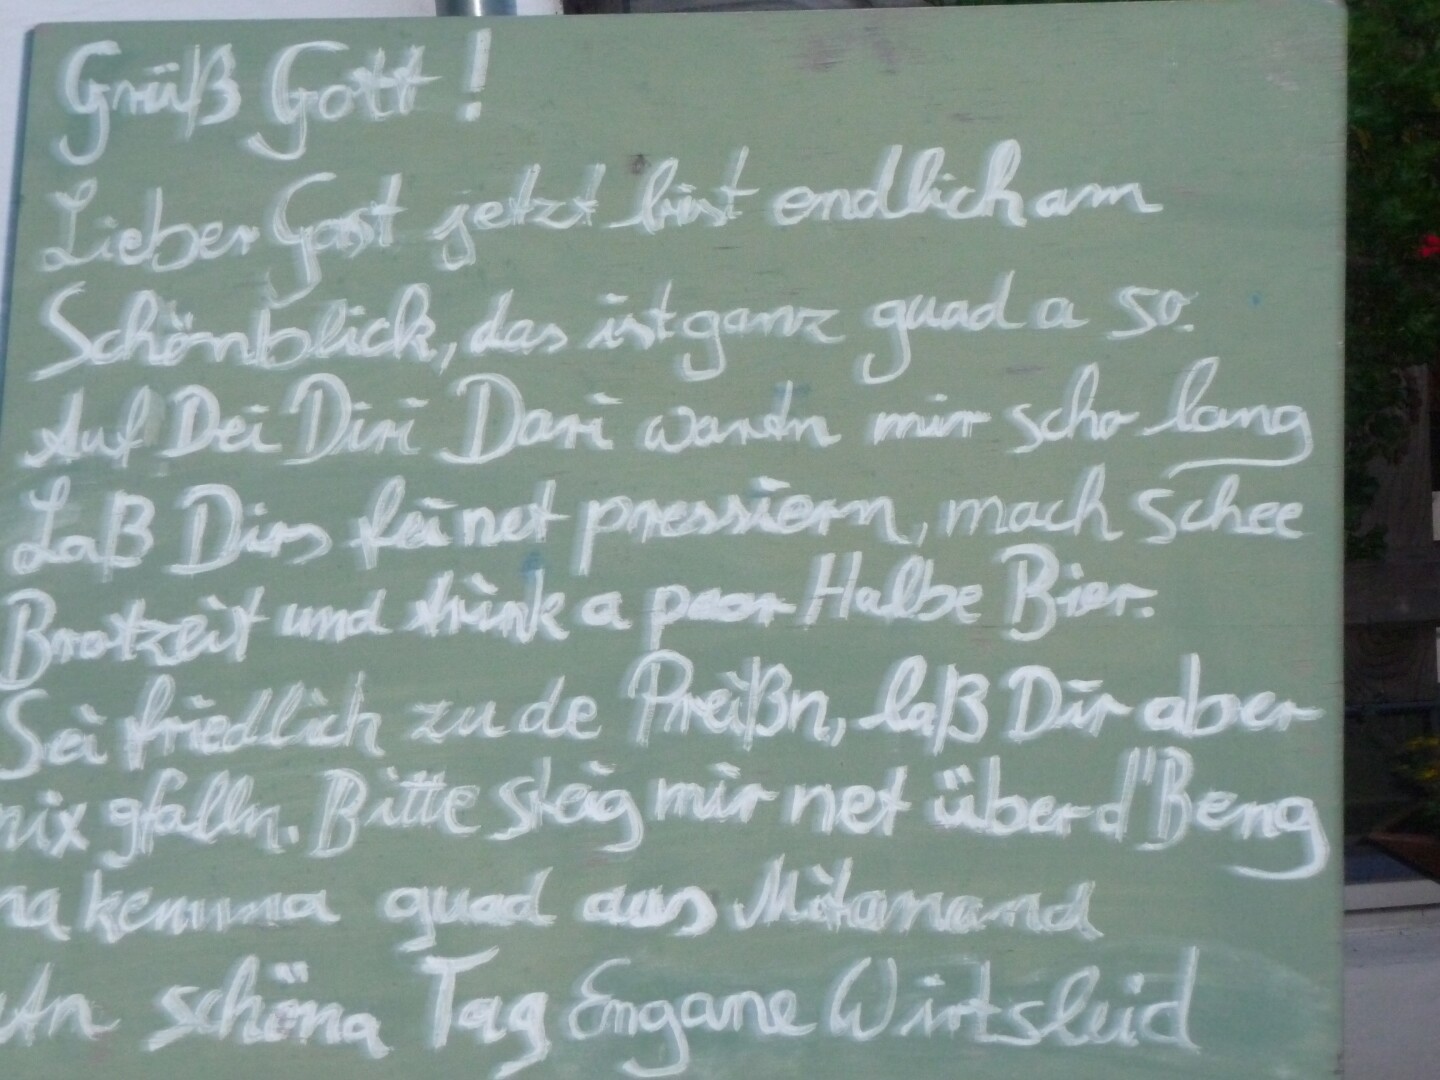 Grüß Gott!
Lieber Gast jetzt bist endlich am
Schönblick, das ist ganz guad a so.
Auf Dei Diri Dari wartn mir scho lang
Laß Dirs fei net pressiern, mach schee
Brotzeit und trink a paar Halbe Bier.
Sei friedlich zu de Preißn, laß Dir aber
nix gfalln. Bitte steig mir net über d'Beng
na kemma guad aus Mitanand
schöna Tag Engane Wirtsleid